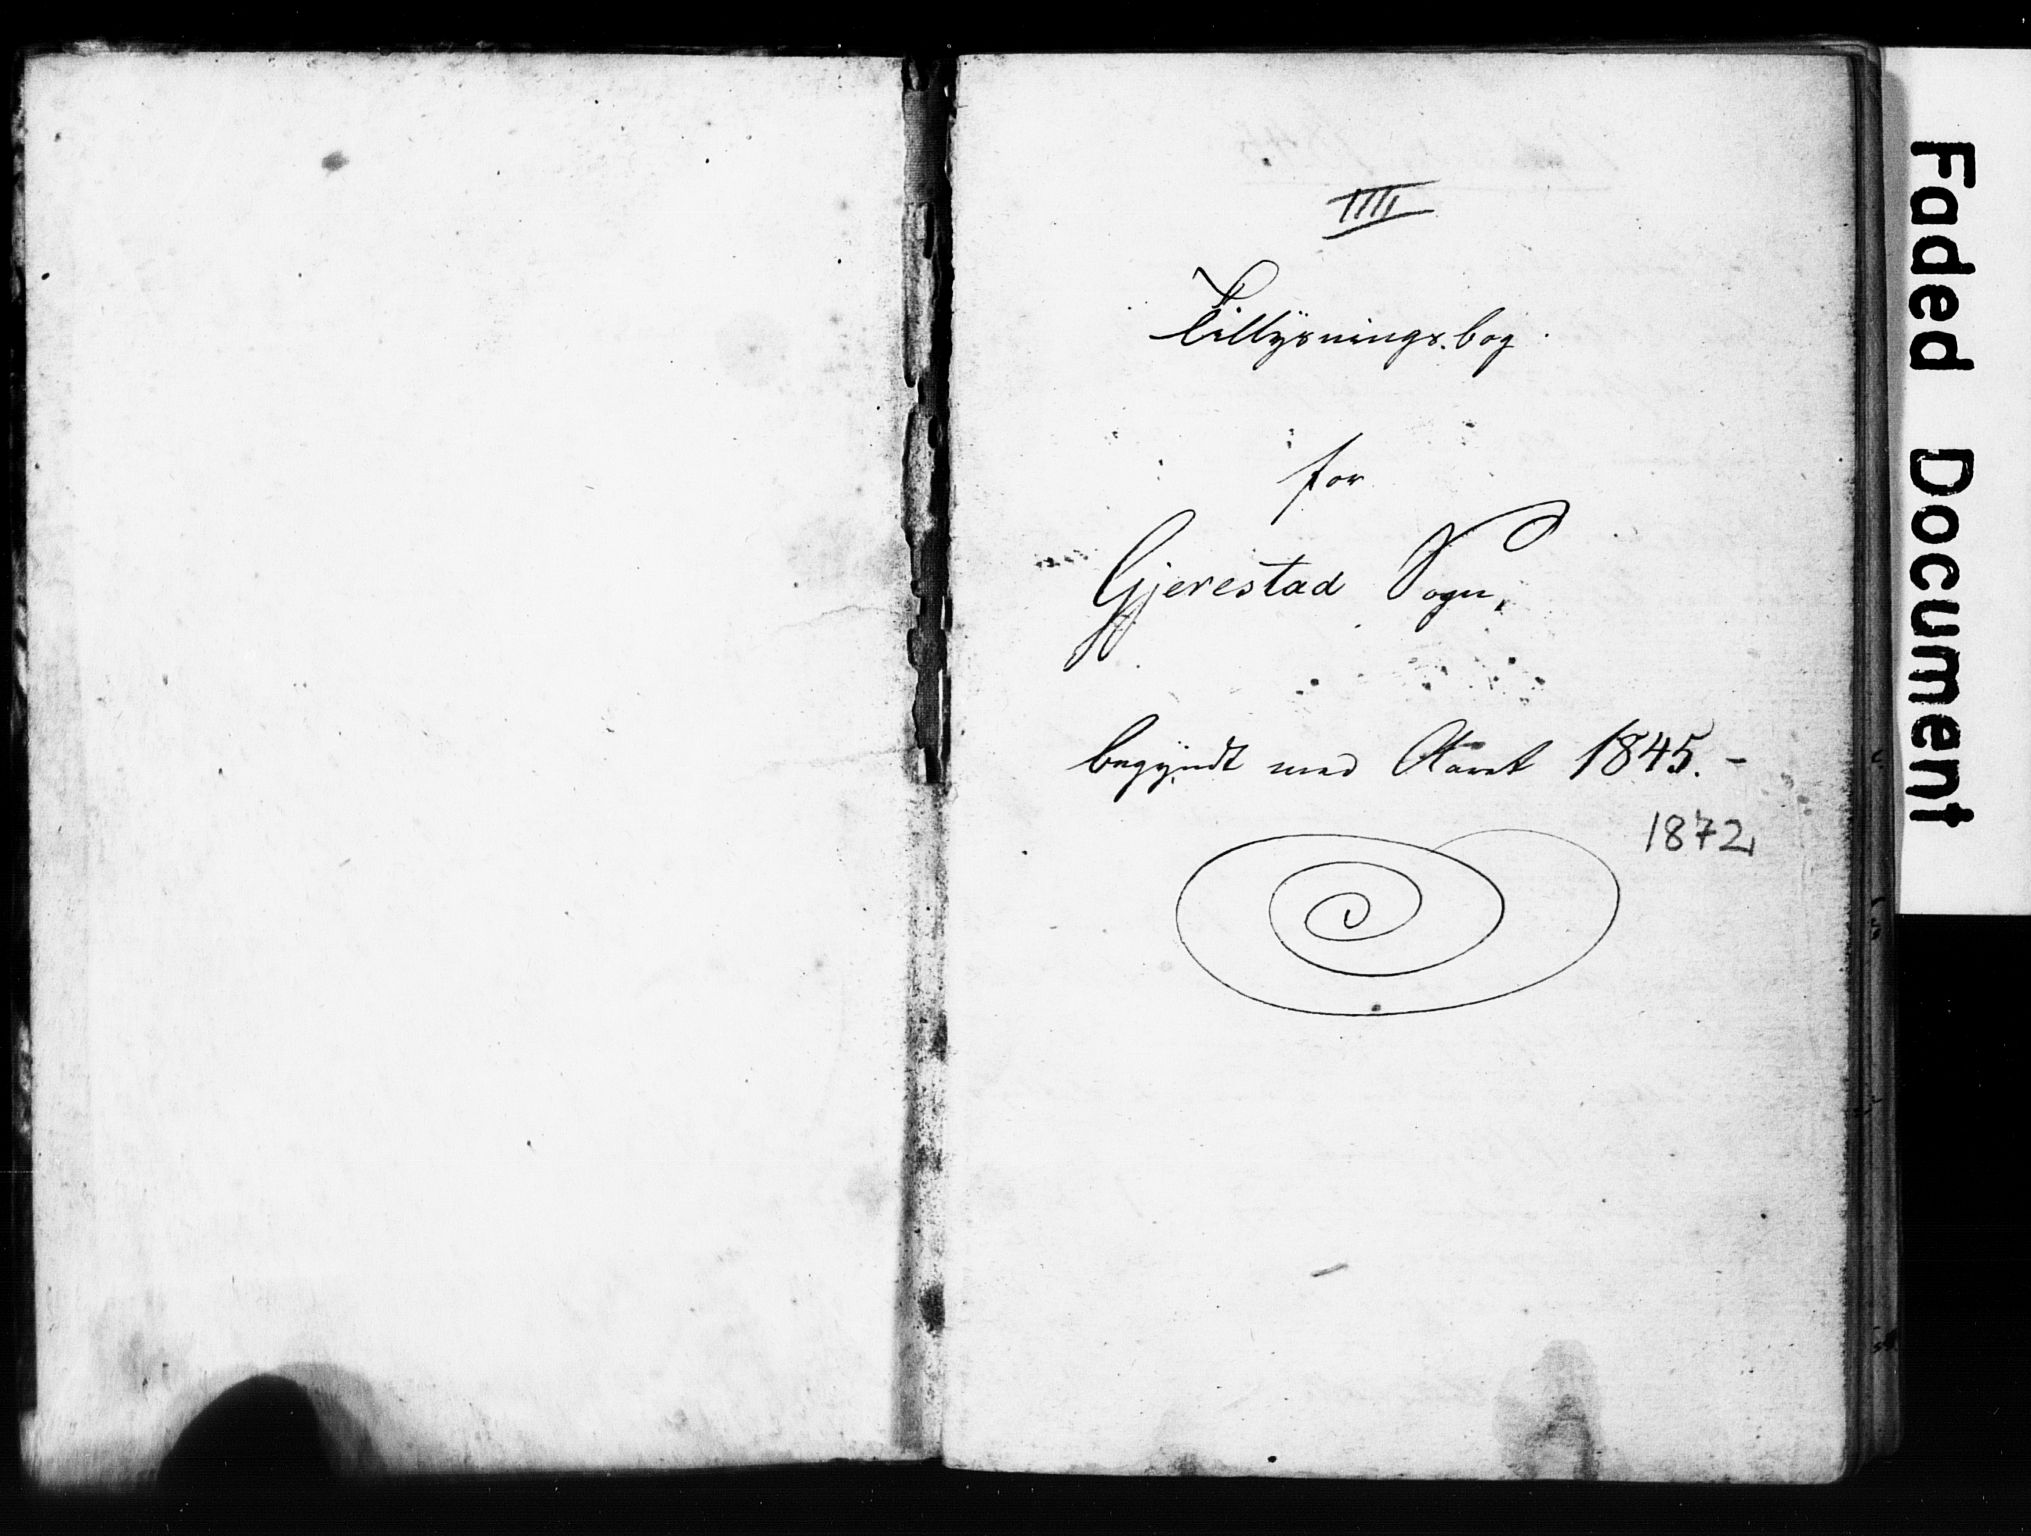 IIII
Tillysnings.bog.
for
Gjerestad Sogn,
begyndt med Aaret 1845. -
1872
Faded Document